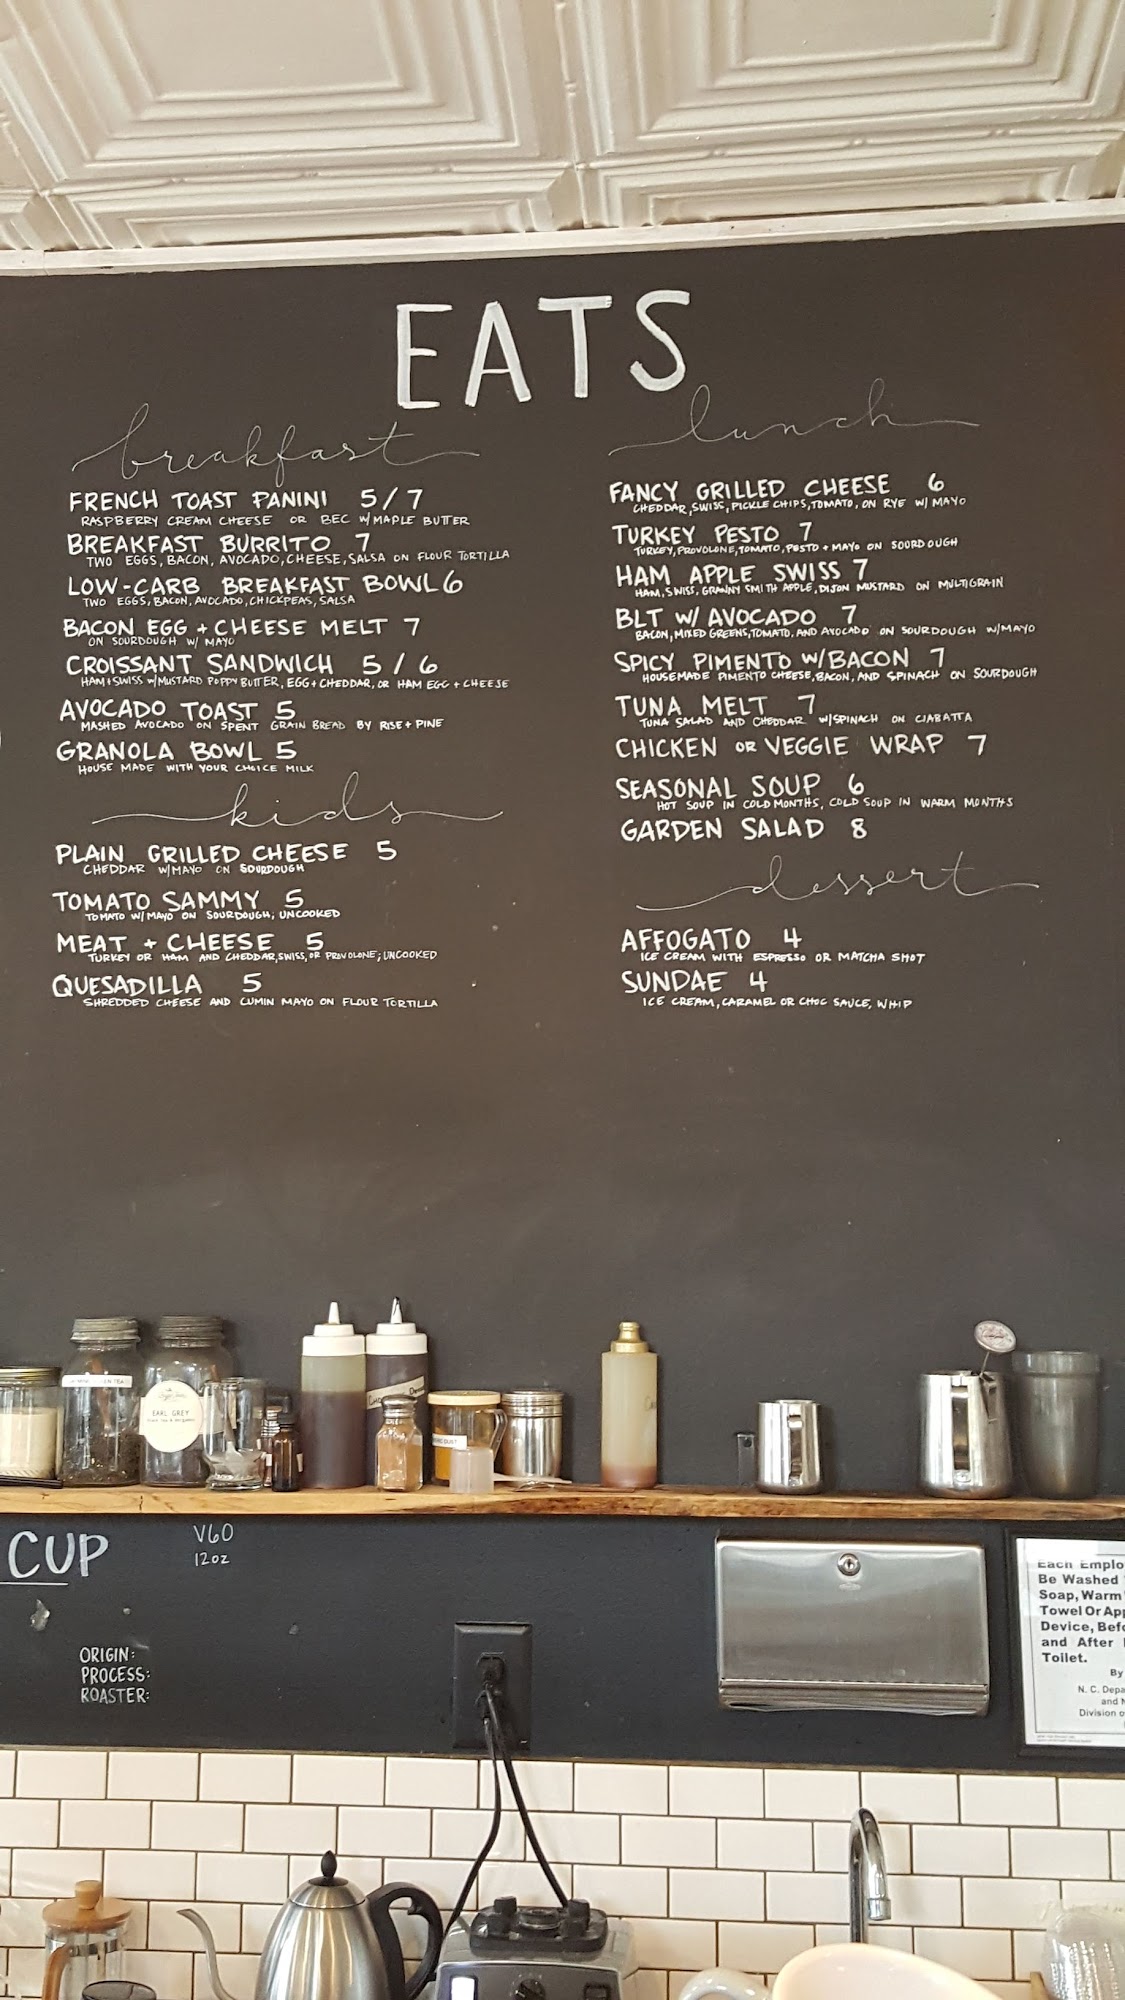 EATS
breakfast
FRENCH TOAST PANINI 5/7
RASPBERRY CREAM CHEESE OR BEC W/MAPLE BUTTER
BREAKFAST BURRITO 7
TWO EGGS, BACON, AVOCADO, CHEESE, SALSA ON FLOUR TORTILLA
LOW-CARB BREAKFAST BOWL 6
TWO EGGS, BACON, AVOCADO, CHICKPEAS, SALSA
BACON EGG + CHEESE MELT 7
ON SOURDOUGH W/ MAYO
CROISSANT SANDWICH 5/6
HAM+SWISS W/MUSTARD POPPY BUTTER, EGG+CHEDDAR, OR HAM EGG + CHEESE
AVOCADO TOAST 5
MASHED AVOCADO ON SPENT GRAIN BREAD BY RISE + PINE
GRANOLA BOWL 5
HOUSE MADE WITH YOUR CHOICE MILK
kids
PLAIN GRILLED CHEESE 5
CHEDDAR W/MAYO ON SOURDOUGH
TOMATO SAMMY 5
TOMATO W/MAYO ON SOURDOUGH; UNCOOKED
MEAT + CHEESE 5
TURKEY OR HAM AND CHEDDAR, SWISS, OR PROVOLONE; UNCOOKED
QUESADILLA 5
SHREDDED CHEESE AND CUMIN MAYO ON FLOUR TORTILLA
lunch
FANCY GRILLED CHEESE 6
CHEDDAR, SWISS, PICKLE CHIPS, TOMATO, ON RYE W/ MAYO
TURKEY PESTO 7
TURKEY, PROVOLONE, TOMATO, PESTO + MAYO ON SOURDOUGH
HAM APPLE SWISS 7
HAM, SWISS, GRANNY SMITH APPLE, DIJON MUSTARD ON MULTIGRAIN
BLT W/ AVOCADO 7
BACON, MIXED GREENS, TOMATO, AND AVOCADO ON SOURDOUGH W/MAYO
SPICY PIMENTO W/BACON 7
HOUSEMADE PIMENTO CHEESE, BACON, AND SPINACH ON SOURDOUGH
TUNA MELT 7
TUNA SALAD AND CHEDDAR W/SPINACH ON CIABATTA
CHICKEN OR VEGGIE WRAP 7
SEASONAL SOUP 6
HOT SOUP IN COLD MONTHS, COLD SOUP IN WARM MONTHS
GARDEN SALAD 8
dessert
AFFOGATO 4
ICE CREAM WITH ESPRESSO OR MATCHA SHOT
SUNDAE 4
ICE CREAM, CARAMEL OR CHOC SAUCE, WHIP
EARL GREY
CUP
V60
12oz
ORIGIN:
PROCESS:
ROASTER:
Each Emplo
Be Washed
Soap, Warm
Towel Or App
Device, Befo
and After
Toilet.
By
N. C. Depa
and N
Division o